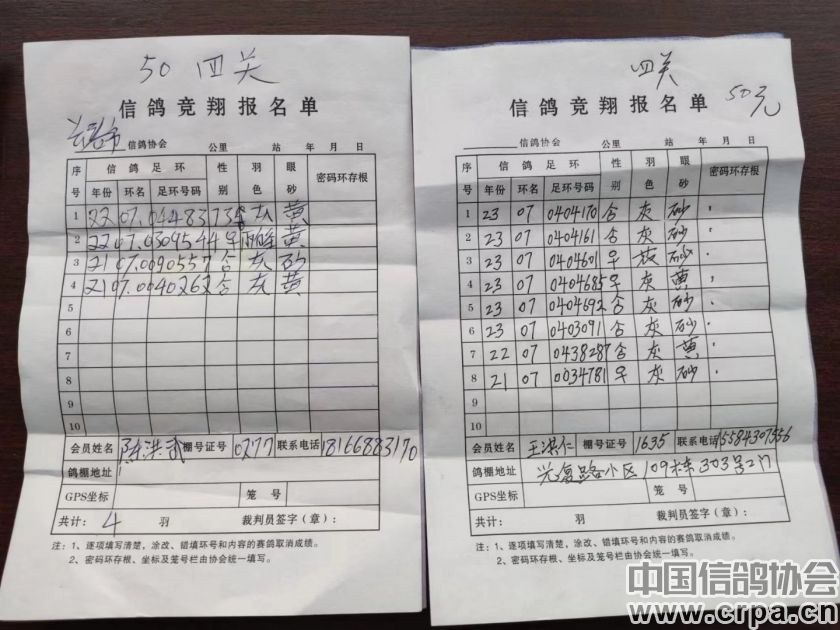 50 四关
信鸽竞翔报名单
长春市 信鸽协会 公里 站 年 月 日
序号 信鸽足环 性别 羽色 眼砂 密码环存根
年份 环名 足环号码
1 22 07. 灰 黄
2 22 07. 0309544 早 黄
3 21 07. 0090557 合 灰 砂
4 21 07. 0040262 合 灰 黄
5
6
7
8
9
10
会员姓名 陈洪武 棚号证号 0277 联系电话 18166883170
鸽棚地址
GPS坐标 笼号
共计: 4 羽 裁判员签字(章):
注:1、逐项填写清楚,涂改、错填环号和内容的赛鸽取消成绩。
2、密码环存根、坐标及笼号栏由协会统一填写。
四关
50元
信鸽竞翔报名单
信鸽协会 公里 站 年 月 日
序号 信鸽足环 性别 羽色 眼砂 密码环存根
年份 环名 足环号码
1 23 07 0404170 合 灰 砂
2 23 07 0404161 合 灰 砂
3 23 07 0404691 早 砂
4 23 07 0404685 早 灰 黄
5 23 07 0404692 合 灰 砂
6 23 07 0403091 合 灰 砂
7 22 07 0438287 合 灰 黄
8 21 07 0034781 早 灰 砂
9
10
会员姓名 王洪仁 棚号证号 1635 联系电话 15584307556
鸽棚地址 光复路小区109栋303号2门
GPS坐标 笼号
共计: 羽 裁判员签字(章):
注:1、逐项填写清楚,涂改、错填环号和内容的赛鸽取消成绩。
2、密码环存根、坐标及笼号栏由协会统一填写。
中国信鸽协会
www.crpa.cn